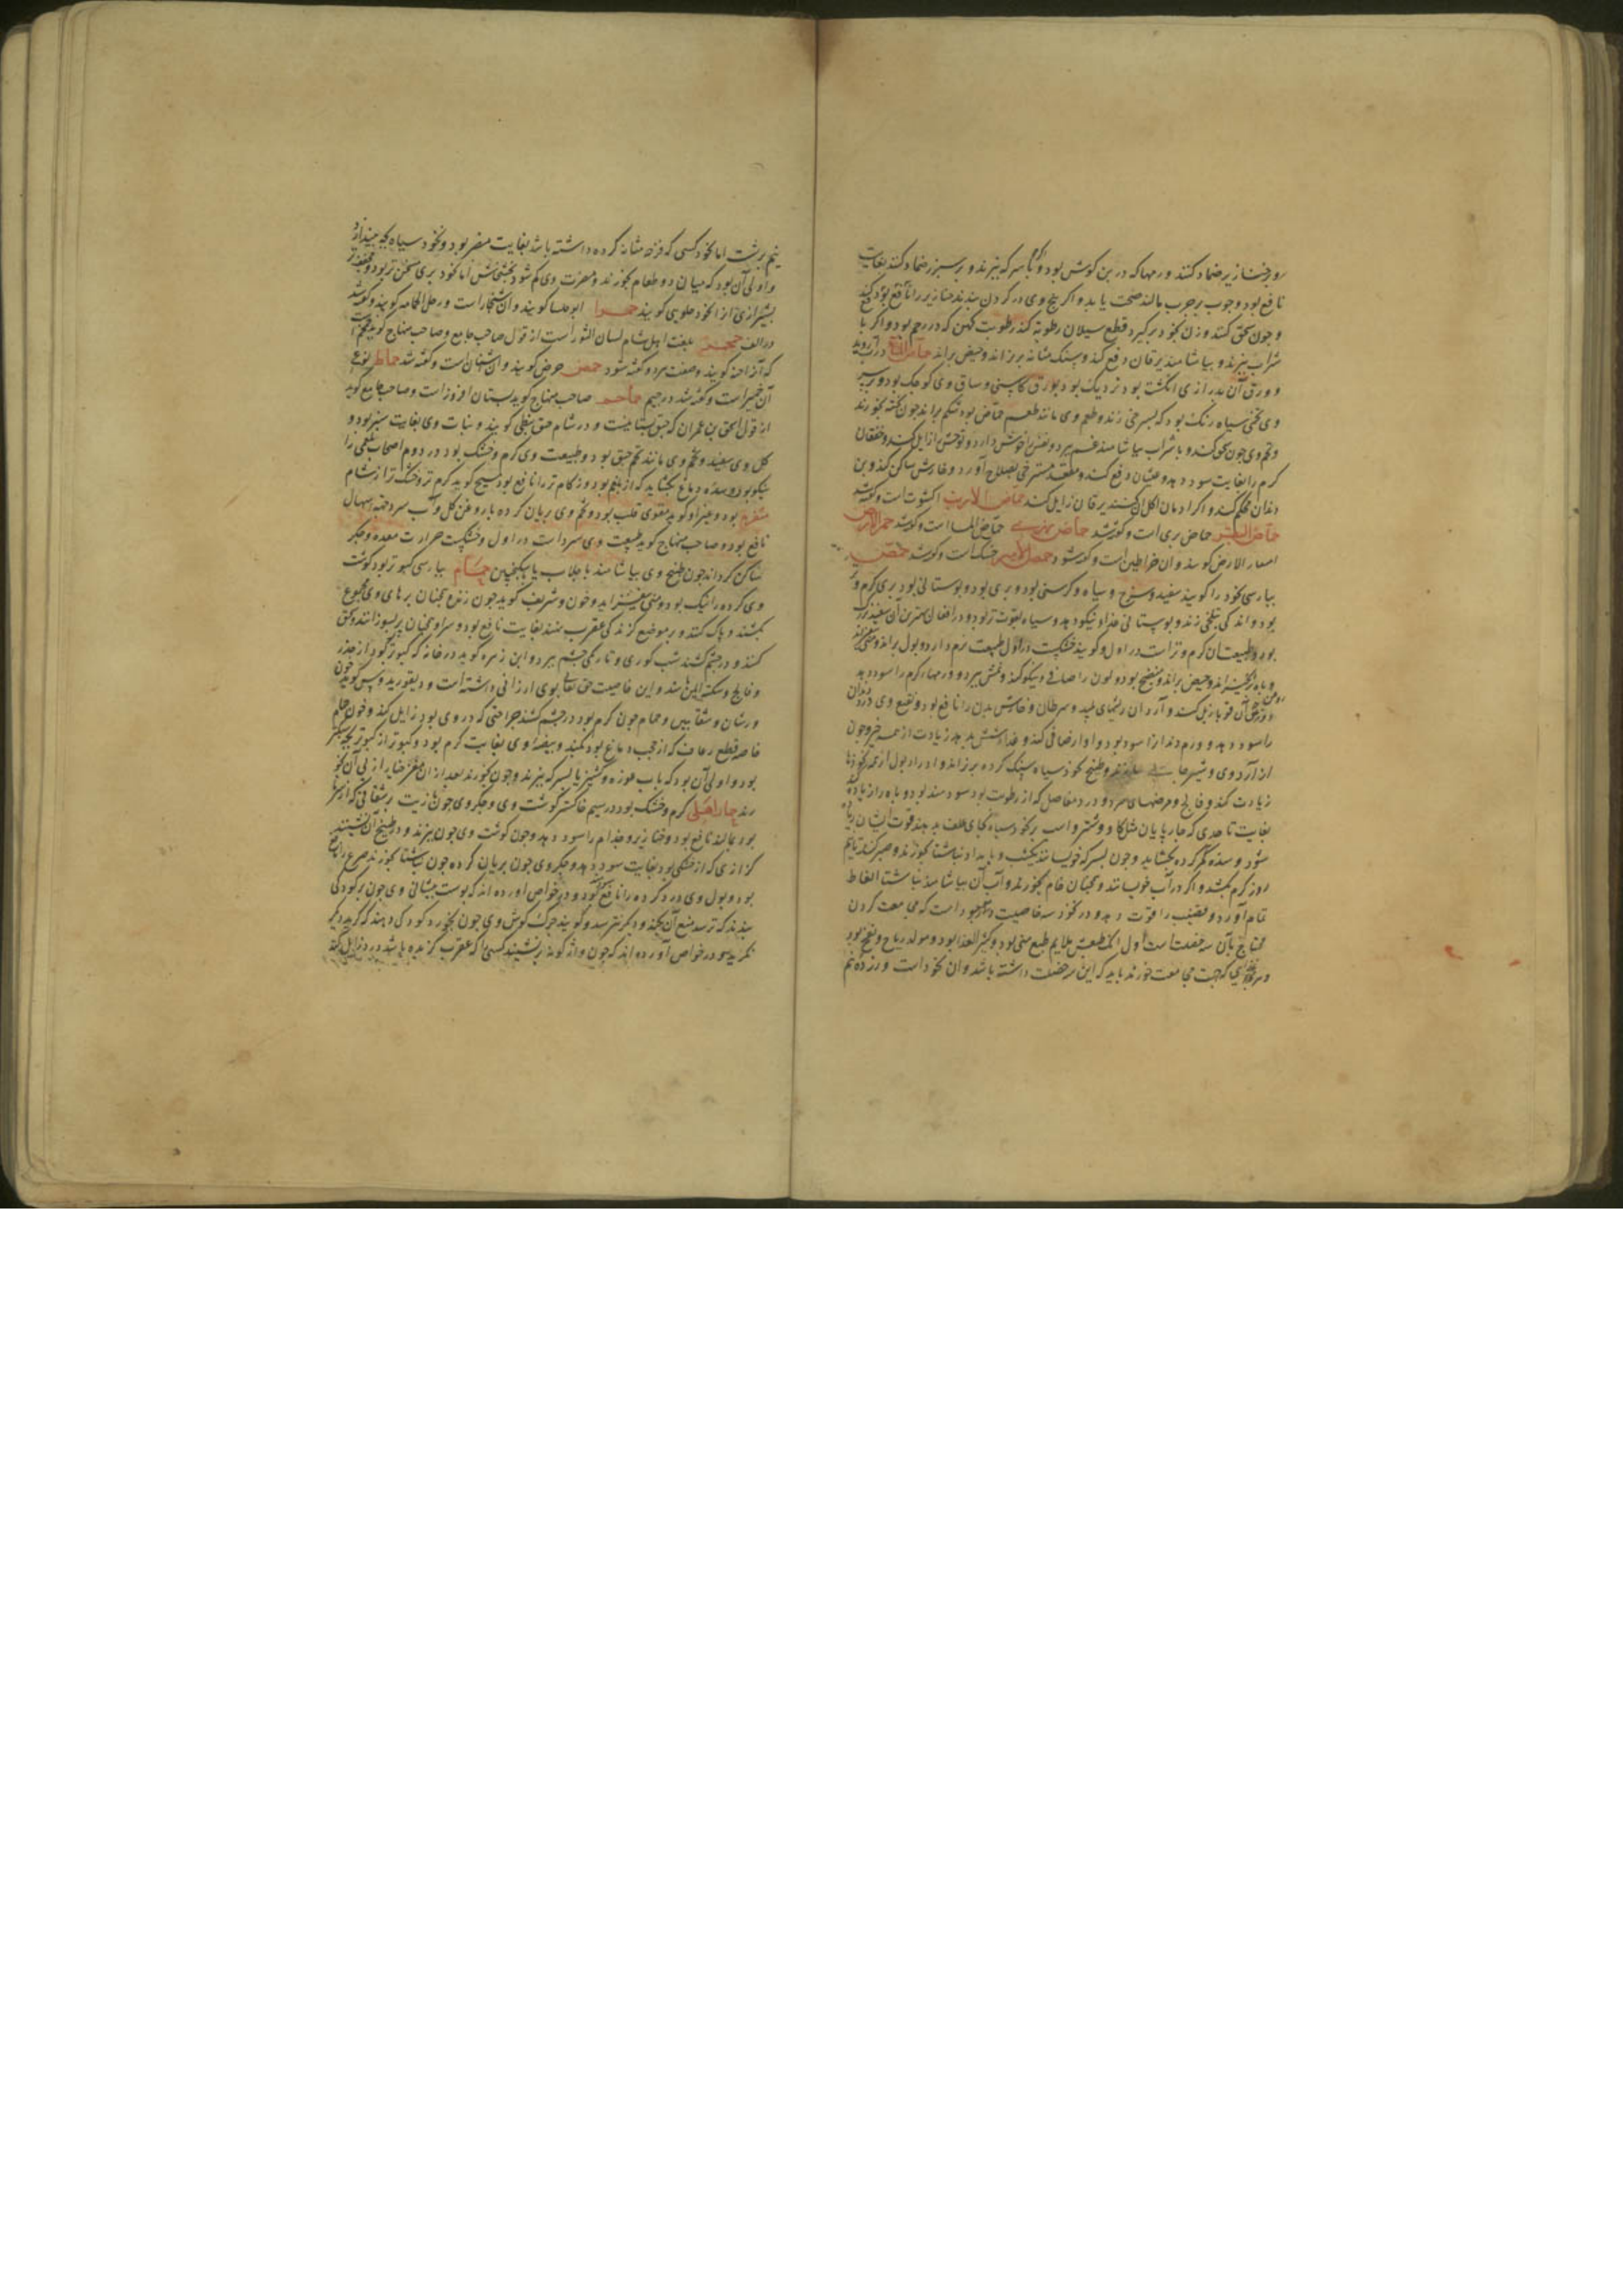 و خنازیر ضماد کنند ورمها که در بن کوش بود و با سرکه بپزند و بر سپرز ضماد کنند بغایت
نافع بود و چون بر جرب مالند صحت یابد و اکر بیخ وی در کردن بندند خنازیر را نافع بود
و چون سحق کنند و زن بخود برکیرد قطع سیلان رطوبه کند رطوبت کهن که در رحم بود و اکر با
شراب بپزند و بیاشامند یرقان دفع کند و سنک مثانه بریزاند و حیض براند
و ورق آن بدرازی انکشت بود نزدیک بود بورق کاسنی و ساق وی کوچک بود و بر سر
وی تخمی سیاه رنک بود که بسرخی زند و طعم وی مانند طعم حماض بود شکم براند چون پخته بخورند
و تخم وی چون سحق کنند و با شراب بیاشامند غم ببرد و نفس را خوش دارد و توحش زایل کند و خفقان
کرم را بغایت سود دهد و غثیان دفع کند و مقعد مسترخی بصلاح آورد و خارش ساکن کند و بن
دندان محکم کند و اکر ادمان اکل آن کنند یرقان زایل کند حماض الارنب اکشوث است و کفته شد
حماض البقر حماض بری است و کفته شد حماض نهری حماض الما است و کفته شد حمر الارض
امعاء الارض کویند و آن خراطین است و کفته شود حمص الامیر حسک است و کفته شد حمص
بپارسی نخود را کویند سفید و سرخ و سیاه و کرسنی بود و بری بود و بوستانی بود بری کرم تر
بود و اندکی بتلخی زند و بوستانی غذا نیکو دهد و سیاه بقوت تر بود و در افعال بهترین آن سفید بزرک
بود و طبیعت آن کرم و تر است در اول و کویند خشکست در اول طبیعت نرم دارد و بول براند
و باه برانکیزاند و حیض براند و منضج بود و لون را صافی و نیکو کند و نمش ببرد و ورمهاء کرم را سود دهد
روغن آن قوبا زایل کند و آرد آن ریشهای پلید و سرطان و خارش بدن را نافع بود و نقیع وی درد دندان
را سود دهد و ورم دندان را سود بود و آواز صافی کند و غذاء شش بدهد زیادت از همه چیز و چون
از آرد وی و شیر و طبیخ نخود سیاه سنک کرده بریزاند و ادرار بول از همه نخودها
زیادت کند و فالج و مرضهای سرد و درد مفاصل که از رطوبت بود سودمند بود و باه را زیاده کند
بغایت تا حدی که چارپایان مثل کاو و شتر و اسب بر نخود سیاه بجای علف بدهند قوت ایشان
شود و سده جکر کرده بکشاید و چون بسرکه خویسانند یکشب و بامداد ناشتا بخورند و صبر کنند تا نیم
روز کرم بکشد و اکر در آب خویسانند و همچنان خام بخورند و آب آن بیاشامند ناشتا انعاظ
تمام آورد و قضیب را قوت دهد و در نخود سه خاصیت موجود است که مجامعت کردن
محتاج بآن سه خصلت است اول آنکه طبعش ملایم طبع منی بود و کثیر الغذا بود و مولد ریاح و نفخ بود
و هر غذایی که جهت مجامعت خورند باید که این سه خصلت داشته باشد و آن نخود است و زرده نیم
نیم برشت اما نخود کسی که قرحه مثانه کرده داشته باشد بغایت مضر بود و نخود سیاه بچه بیندازد
و اولی آن بود که میان دو طعام بخورند و مضرت وی کم شود بخشخاش اما نخود بری مسخن تر بود و مجفف تر
بشیرازی آنرا نخود حلوبی کویند حمرا ابوحلسا کویند و آن شنجار است و رجل الحمامه کویند و کفته شد
در الف حمحم بلغت اهل شام لسان الثور است از قول صاحب جامع و صاحب منهاج کوید
که آنرا خیر کویند وصفت هر دو کفته شود حمض حرض کویند و آن اشنان است و کفته شد حماط نوع
آن جمیز است و کفته شد در جیم حماحم صاحب منهاج کوید بستان افروز است و صاحب جامع کوید
از قول اسحق بن عمران که حبق بستانیست و در شام حبق نبطی کویند و نبات وی بغایت سبز بود و
کل وی سفید و تخم وی مانند تخم حبق بود و طبیعت وی کرم و خشک بود در دوم اصحاب بلغمی را
نیکو بود و سده دماغ بکشاید که از بلغم بود و زکام تر را نافع بود مسیح کوید کرم تر و خشک تر از شام
سفرم بود و غیر او کوید مقوی قلب بود و تخم وی بریان کرده با روغن کل و آب سرد جهة اسهال
نافع بود و صاحب منهاج کوید طبیعت وی سرد است در اول و خشکست حرارت معده و جکر
ساکن کرداند چون طبیخ وی بیاشامند با جلاب یا سکنجبین حمام بپارسی کبوتر بود کوشت
وی کرده را نیک بود و منی بیفزاید و خون و شریف کوید چون زنده همچنان پرهای وی مجموع
بکشند و پاک کنند و بر موضع کزندکی عقرب نهند بغایت نافع بود و سر او همچنان پر بسوزانند و سحق
کنند و در چشم کشند شب کوری و تاریکی چشم ببرد و ابن زهره کوید در خانه که کبوتر بود از خدر
و فالج و سکته ایمن باشند و این خاصیت حق تعالی بوی ارزانی داشته است و دیسقوریدوس کوید خون
ورشان و شفانین و حمام چون کرم بود در چشم کشند جراحتی که در وی بود زایل کند و خون حمام
خاصه قطع رعاف که از حجب دماغ بود بکند و بیضه او بغایت کرم بود و کبوتر از کبوتر بچه سبکتر
بود و اولی آن بود که بآب غوره و کشنیز یا بسرکه بپزند و چون بخورند بعد از آن مغز خیار از پی آن بخو
رند حمار اهلی کرم و خشک بود در سیم خاکستر کوشت وی و جکر وی چون با زیت بر شقاقی که از سرما
بود بمالند نافع بود و خنازیر و جذام را سود دهد و چون کوشت وی چون بپزند و در طبیخ آن نشینند
کزازی که از خشکی بود بغایت سود دهد و جکر وی چون بریان کرده چون ناشتا بخورند صرع را نافع
بود و بول وی درد کرده را نافع بود و در خواص آورده اند که پوست پیشانی وی چون بر کودکی
بندند که ترسد منع آن بکند و دیکر نترسد و کویند چرک کوش وی چون بخورد کودکی دهند که کرید دیکر
نکرید و در خواص آورده اند که چون واژکونه بر نشیند کسی را که عقرب کزیده باشد درد زایل کند